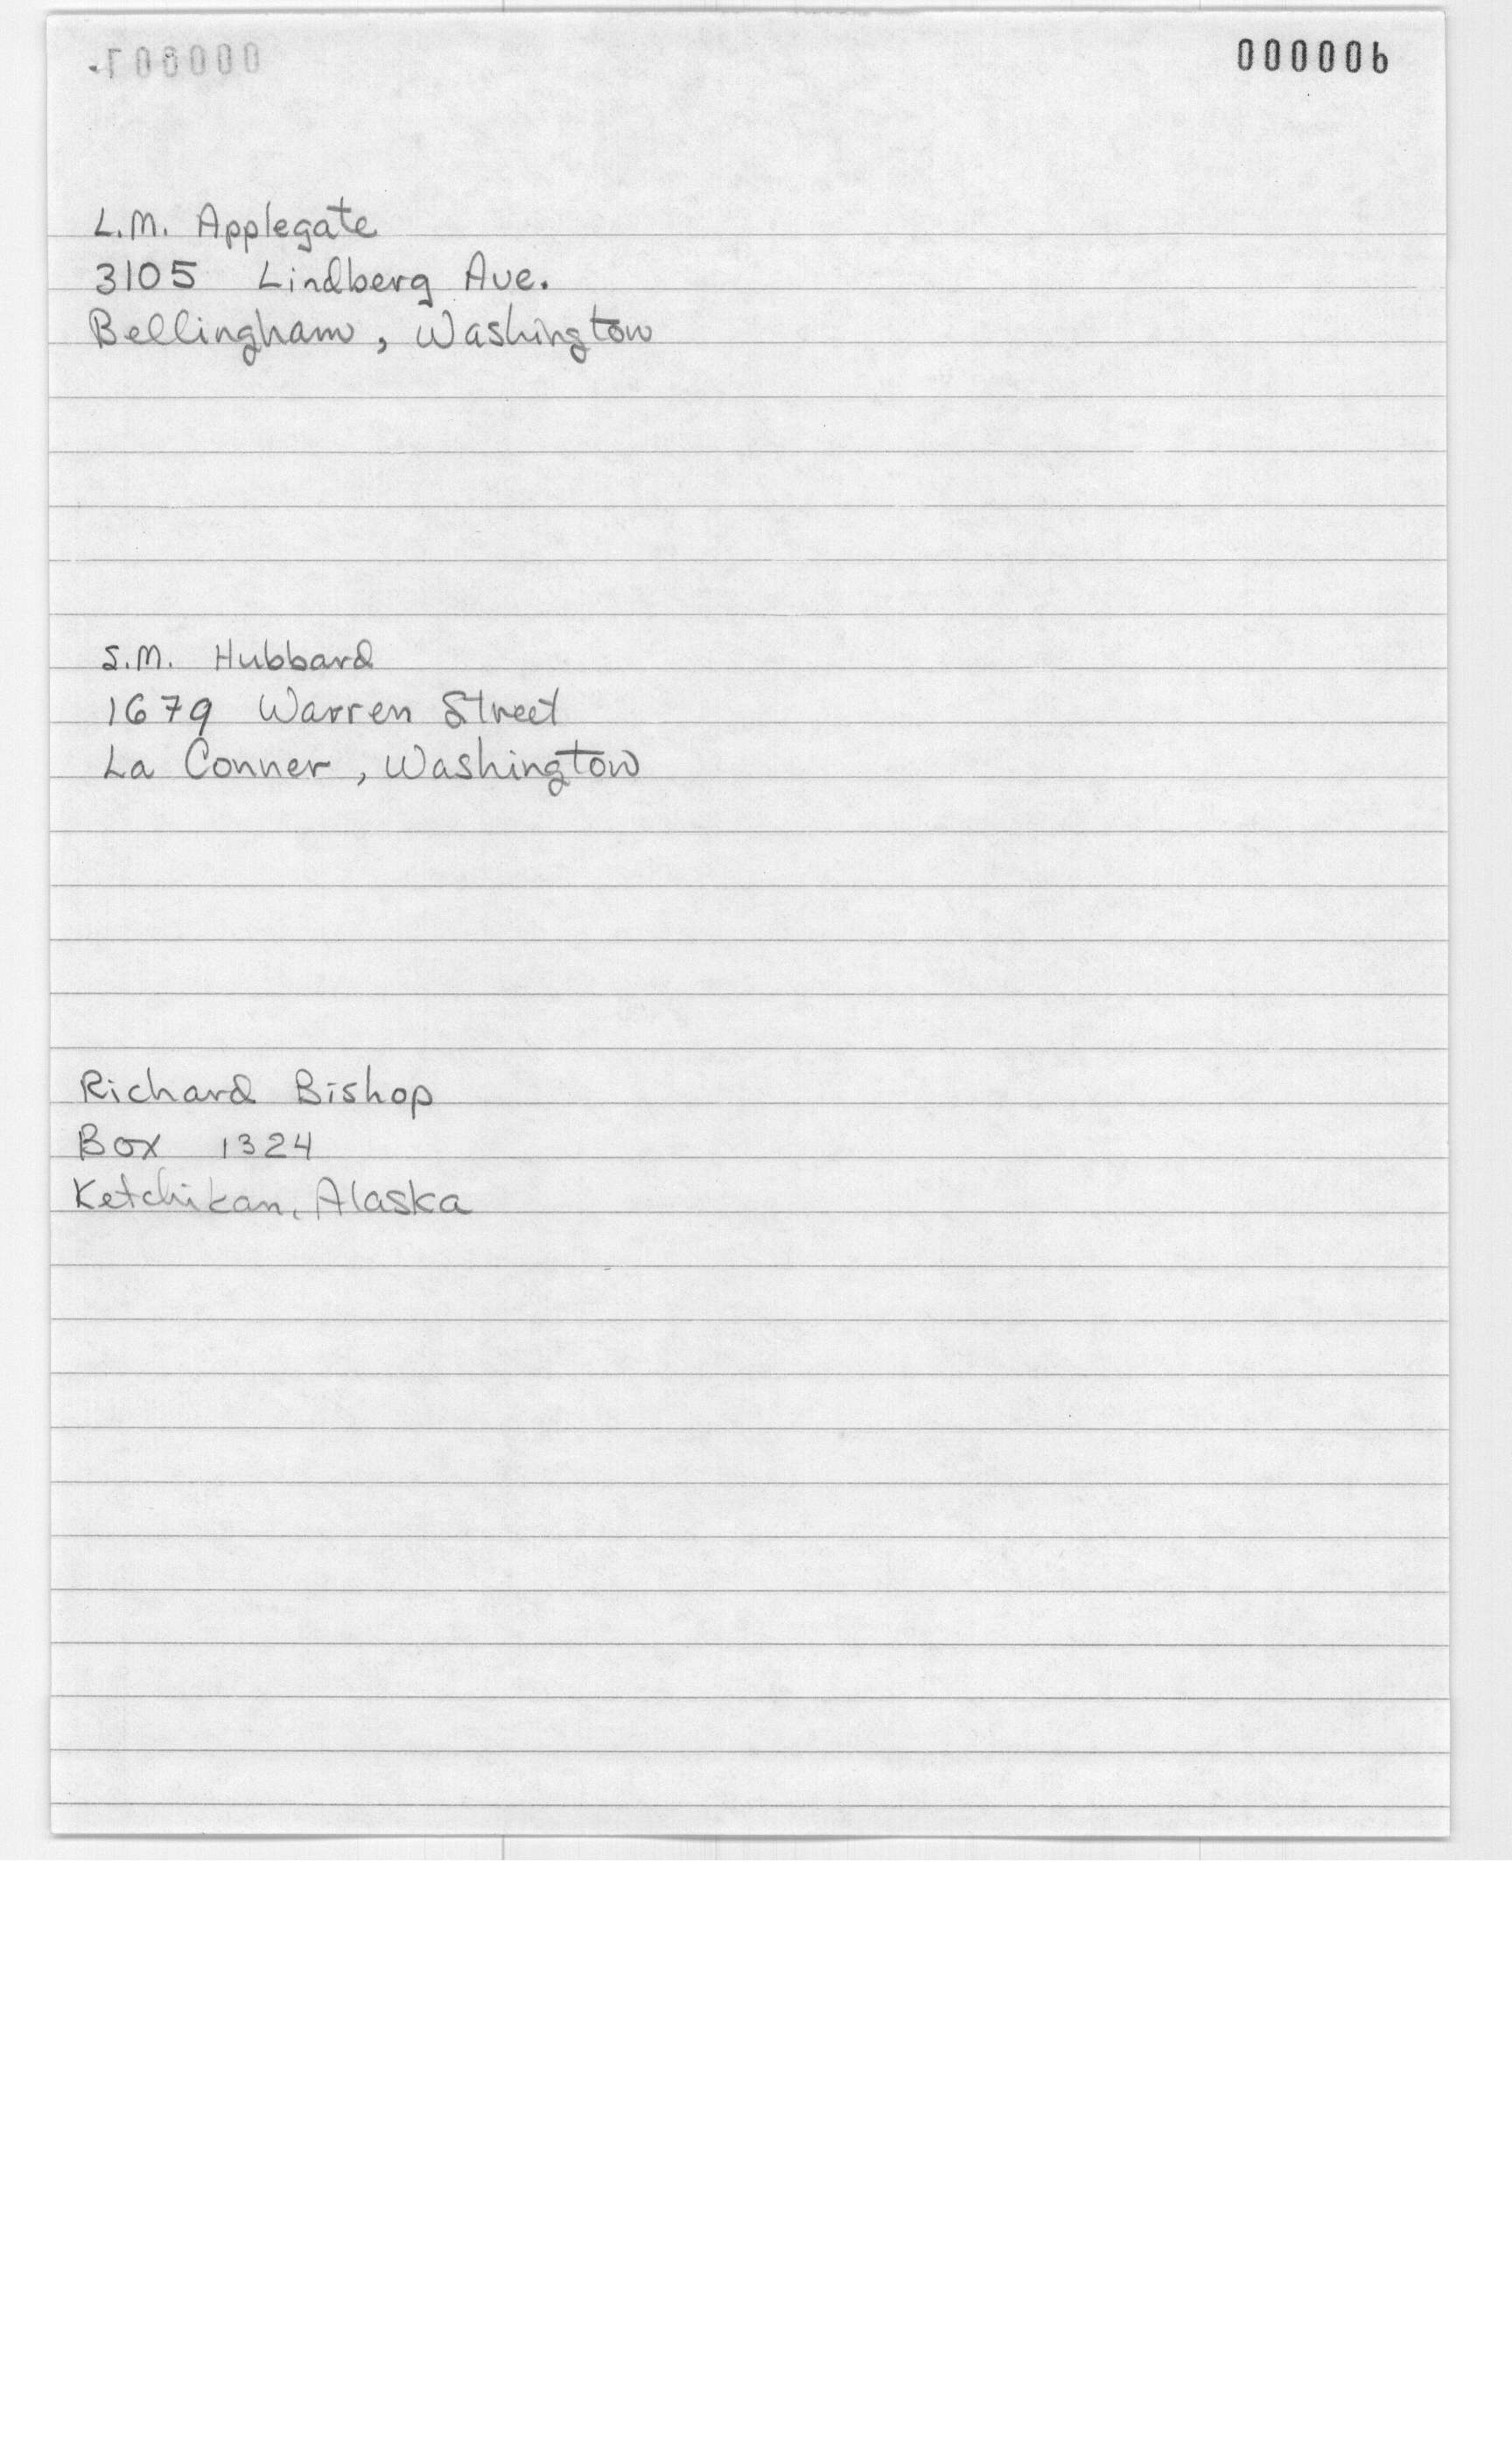 000006
L.M. Applegate
3105 Lindberg Ave.
Bellingham, Washington
S.M. Hubbard
1679 Warren Street
La Conner, Washington
Richard Bishop
Box 1324
Ketchikan, Alaska